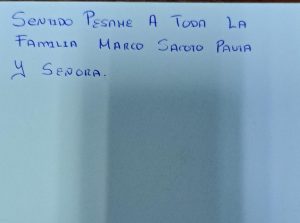 Sentido Pesame A Toda La
Familia Marco Sacoto Pavia
Y Señora.